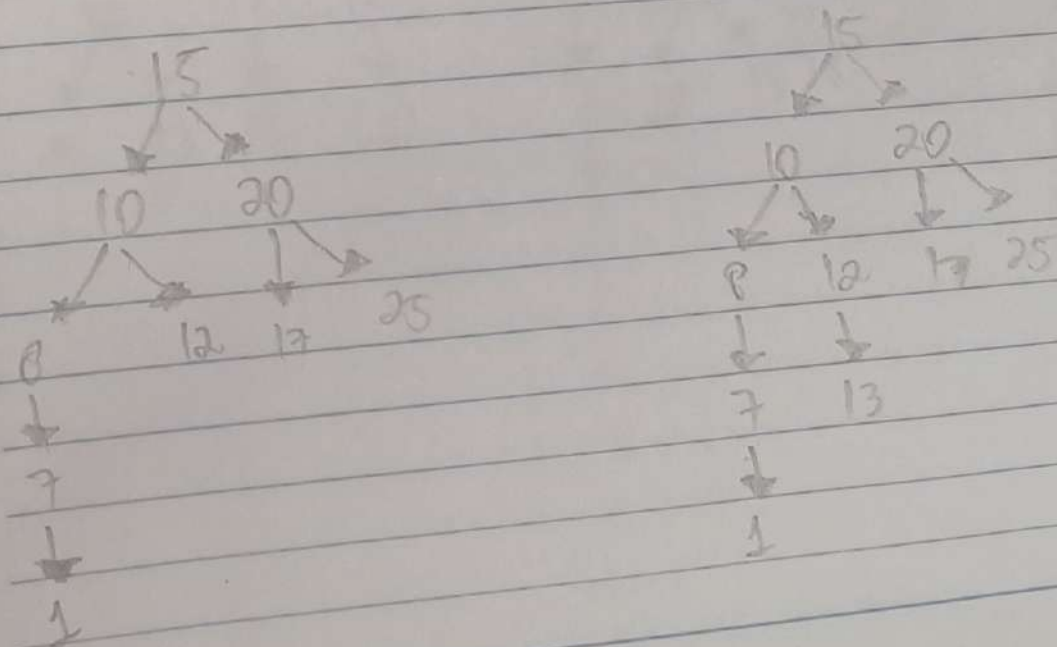 15
10 20
8 12 17 25
7
1
15
10 20
8 12 17 25
7 13
1